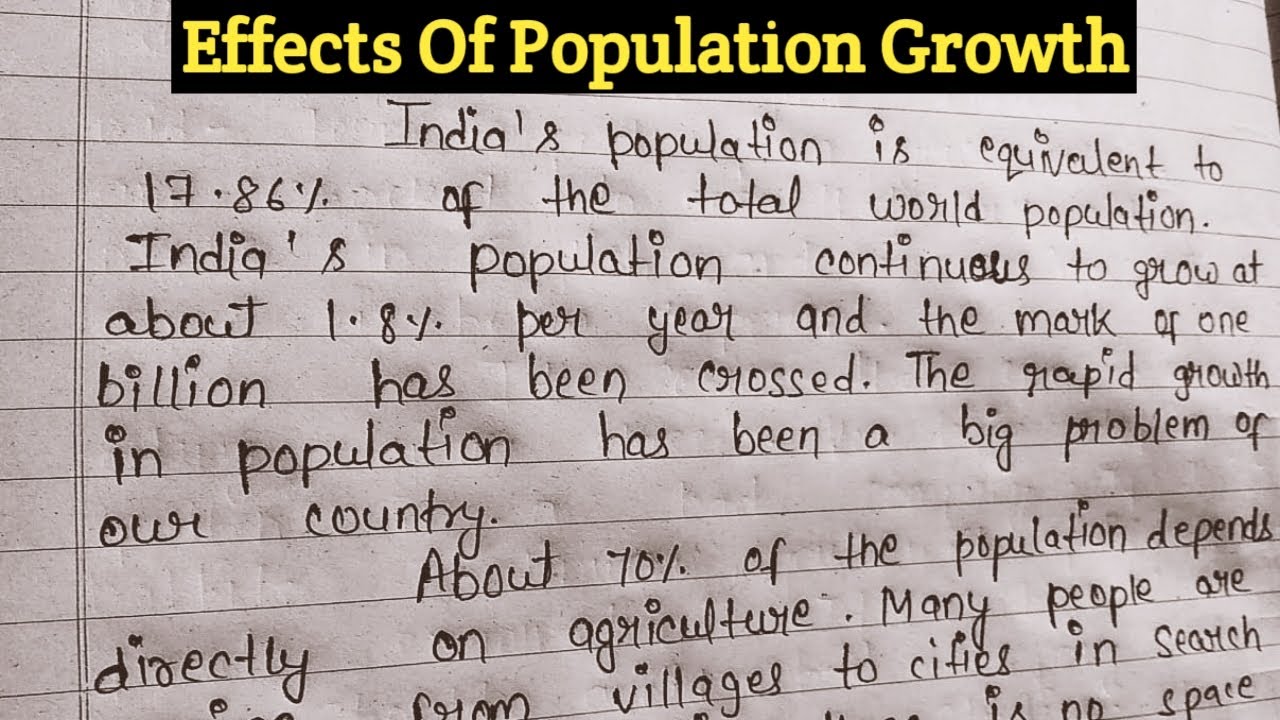 Effects Of Population Growth
India's population is equivalent to
17.86% of the total world population.
India's population continuous to grow at
about 1.8% per year and the mark of one
billion has been crossed. The rapid growth
in population has been a big problem of
our country.
About 70% of the population depends
directly on agriculture. Many people are
from villages to cities in search
is no space